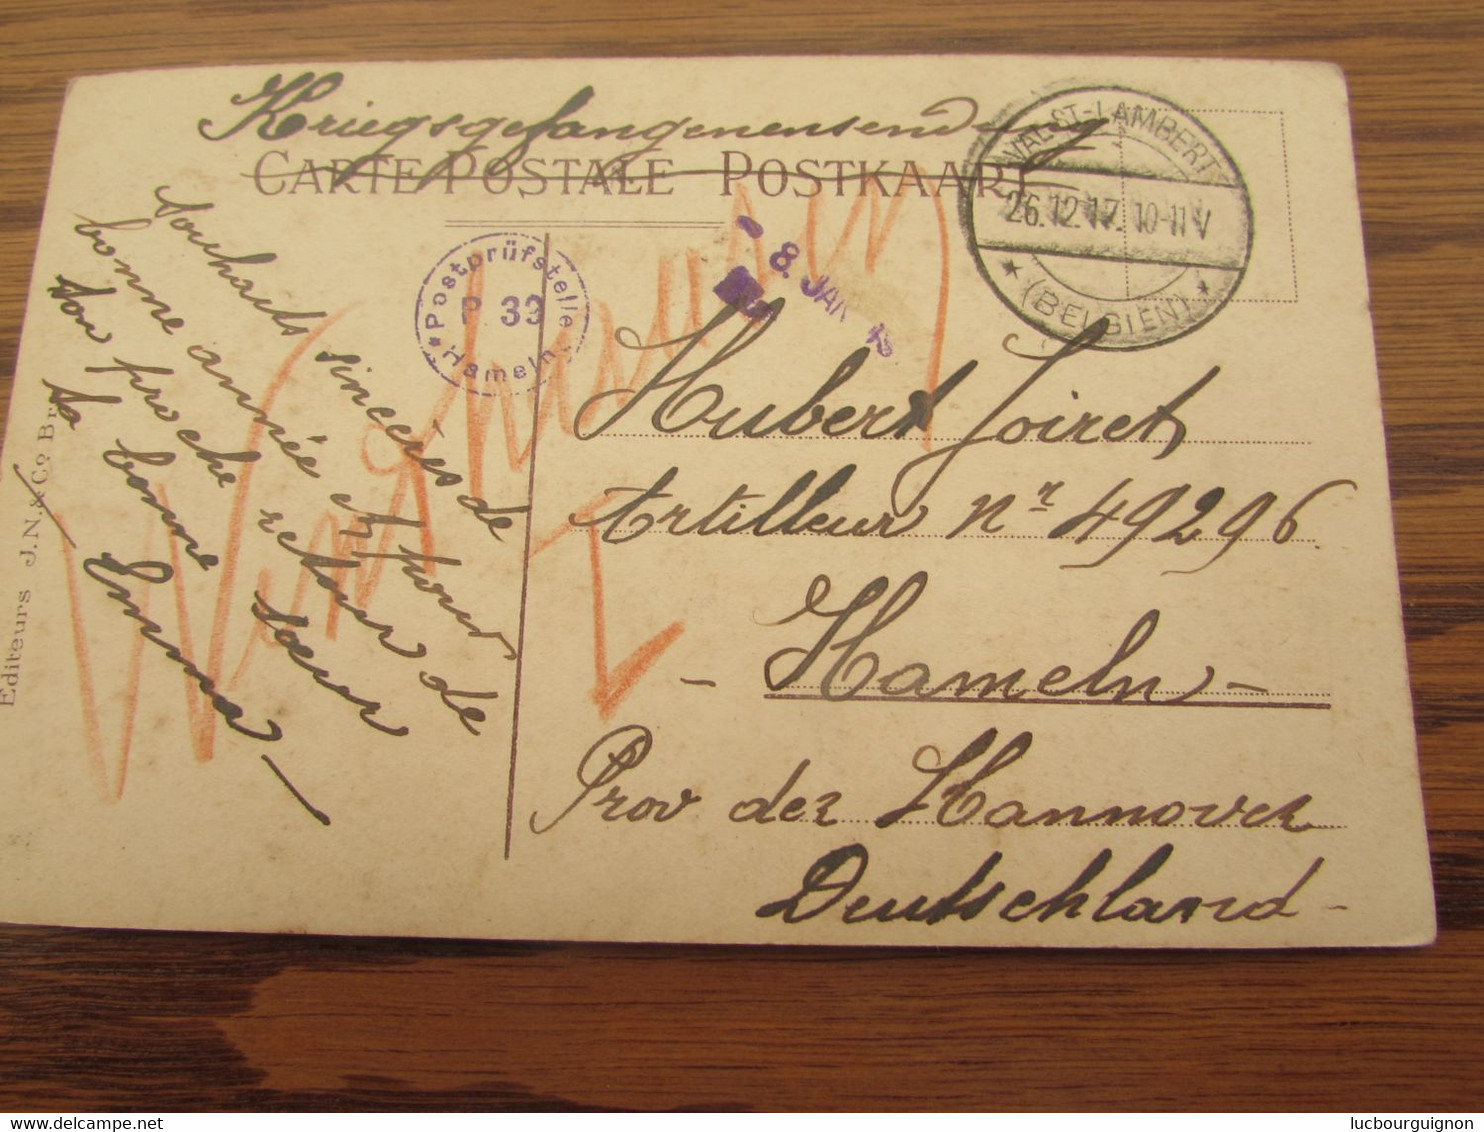 Kriegsgefangenensend
CARTE POSTALE POSTKAART
VAL-ST-LAMBERT
26.12.17. 10-11 V
* (BELGIEN) *
Postprüfstelle
P. 33
* Hameln
- 8. JAN
Souhaits sincères de
bonne année et pour
ton proche retour de
ta bonne sœur
Emma
Hubert Joiret
Artilleur nr 49296
- Hameln -
Prov der Hannover
Deutschland -
Editeurs J.N. & Co Br
lucbourguignon